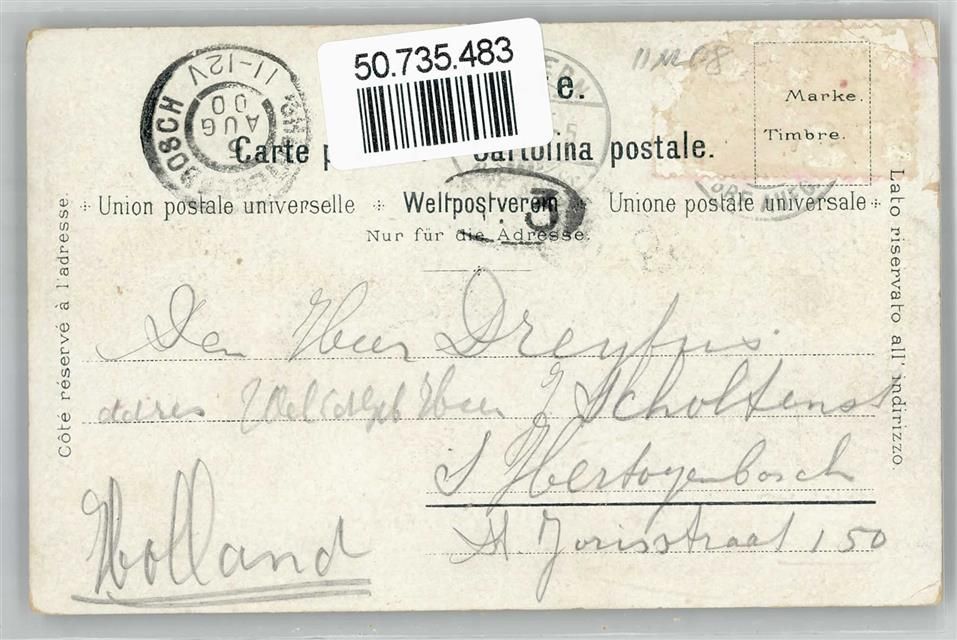 50.735.483
e.
Carte p
Cartolina postale.
Marke.
Timbre.
Union postale universelle
Weltpostverein
Unione postale universale
Nur für die Adresse.
Côté réservé à l'adresse.
Lato riservato all' indirizzo.
11-12V
AUG
00
BOSCH
3
Den Heer Dreyfus
adres Heer J Scholtens
S Hertogenbosch
St. Jorisstraat 150
Holland